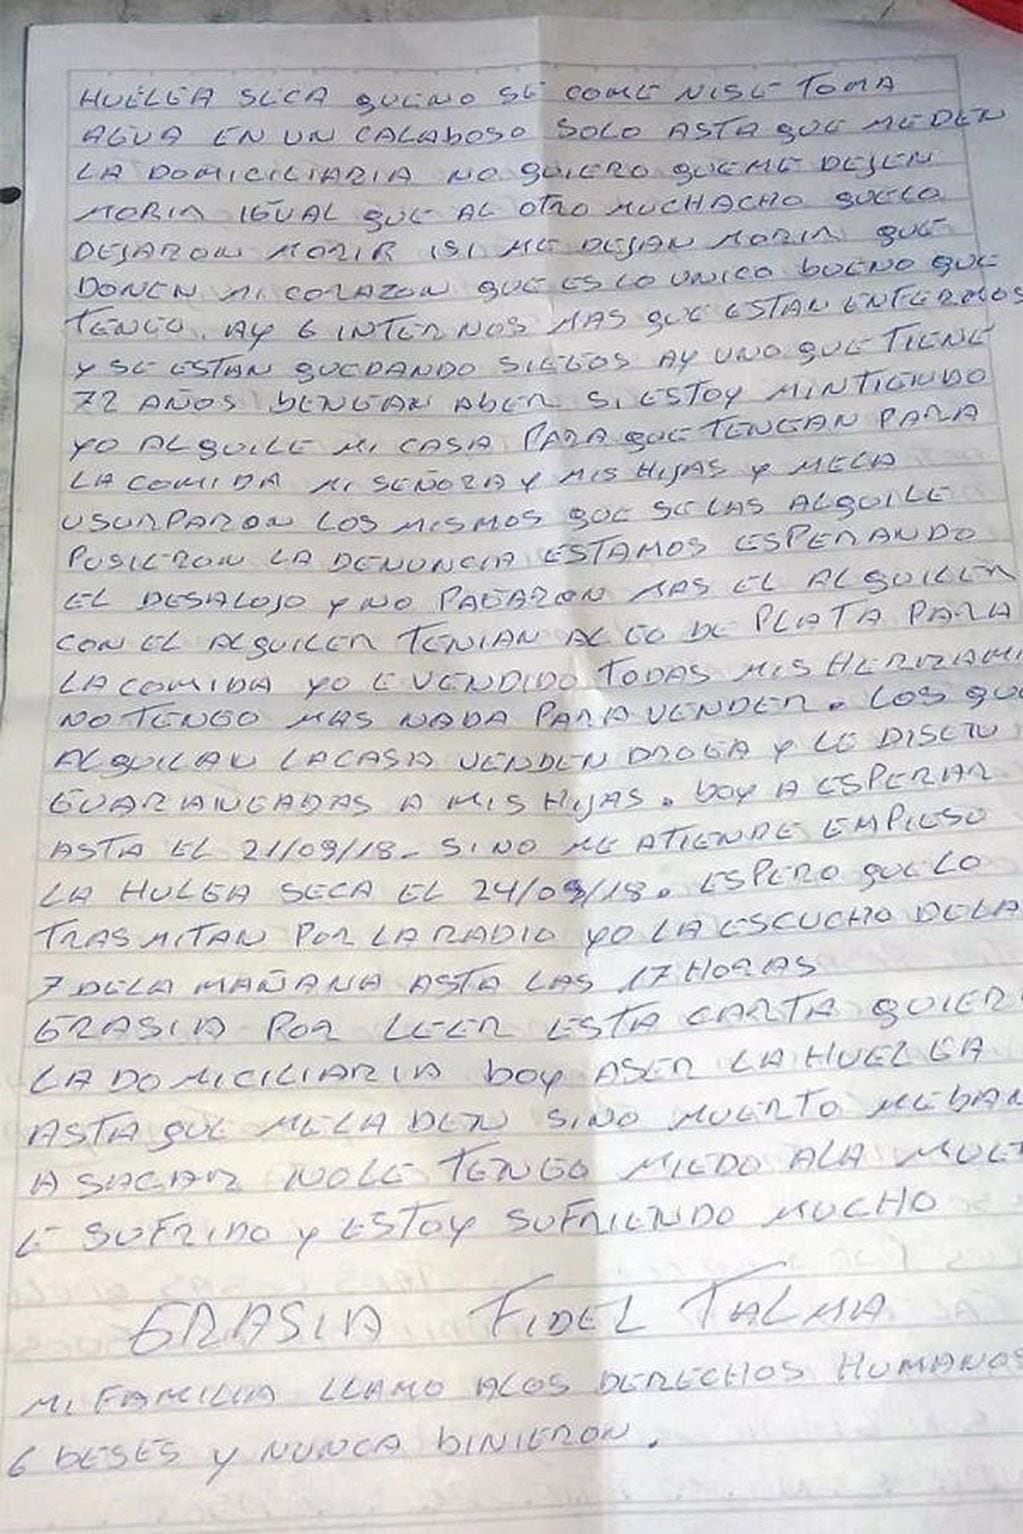 HUELGA SECA QUENO SE COME NISE TOMA
AGUA EN UN CALABOSO SOLO ASTA QUE MEDEN
LA DOMICILIARIA NO QUIERO QUEME DEJEN
MORIR IGUAL QUE AL OTRO MUCHACHO QUELO
DEJARON MORIR ISI ME DEJAN MORIR QUE
DONEN MI CORAZON QUE ES LO UNICO BUENO QUE
TENGO. AY 6 INTERNOS MAS QUE ESTAN ENFERMOS
Y SE ESTAN QUEDANDO SIEGOS AY UNO QUE TIENE
72 AÑOS BENGAN ABER SI ESTOY MINTIENDO
YO ALQUILE MI CASA PARA QUE TENGAN PARA
LA COMIDA MI SEÑORA Y MIS HIJAS Y MELA
USURPARON LOS MISMOS QUE SE LAS ALQUILE
PUSIERON LA DENUNCIA ESTAMOS ESPERANDO
EL DESALOJO Y NO PAGARON MAS EL ALQUILER
CON EL ALQUILER TENIAN ALGO DE PLATA PARA
LA COMIDA YO E VENDIDO TODAS MIS HERRAMI
NO TENGO MAS NADA PARA VENDER. LOS QUE
ALQUILAN LACASA VENDEN DROGA Y LE DISEN
GUARANGADAS A MIS HIJAS. BOY A ESPERAR
ASTA EL 21/09/18. SI NO ME ATIENDE EMPIESO
LA HULGA SECA EL 24/09/18. ESPERO QUE LO
TRASMITAN POR LA RADIO YO LA ESCUCHO DELA
7 DELA MAÑANA ASTA LAS 17 HORAS
GRASIA POR LEER ESTA CARTA QUIER
LA DOMICILIARIA BOY ASER LA HUELGA
ASTA QUE MELA DEN SINO MUERTO MEBAN
A SACAR NOLE TENGO MIEDO ALA MUE
E SUFRIDO Y ESTOY SUFRIENDO MUCHO
GRASIA FIDEL TALMA
MI FAMILIA LLAMO ALOS DERECHOS HUMANOS
6 BESES Y NUNCA BINIERON.